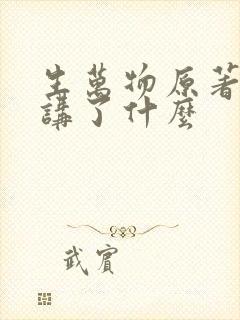 生萬物原著
講了什麼
武賓